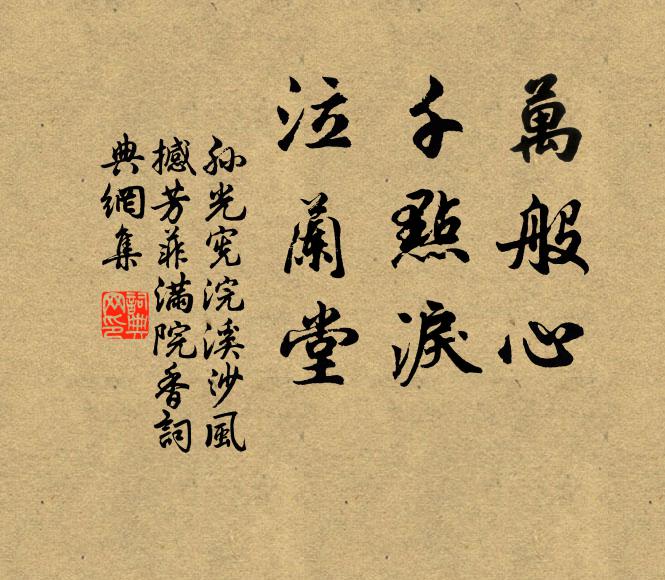 萬般心
千點淚
泣蘭堂
孫光憲浣溪沙風
撼芳菲滿院香詞
典網集
詞典網印